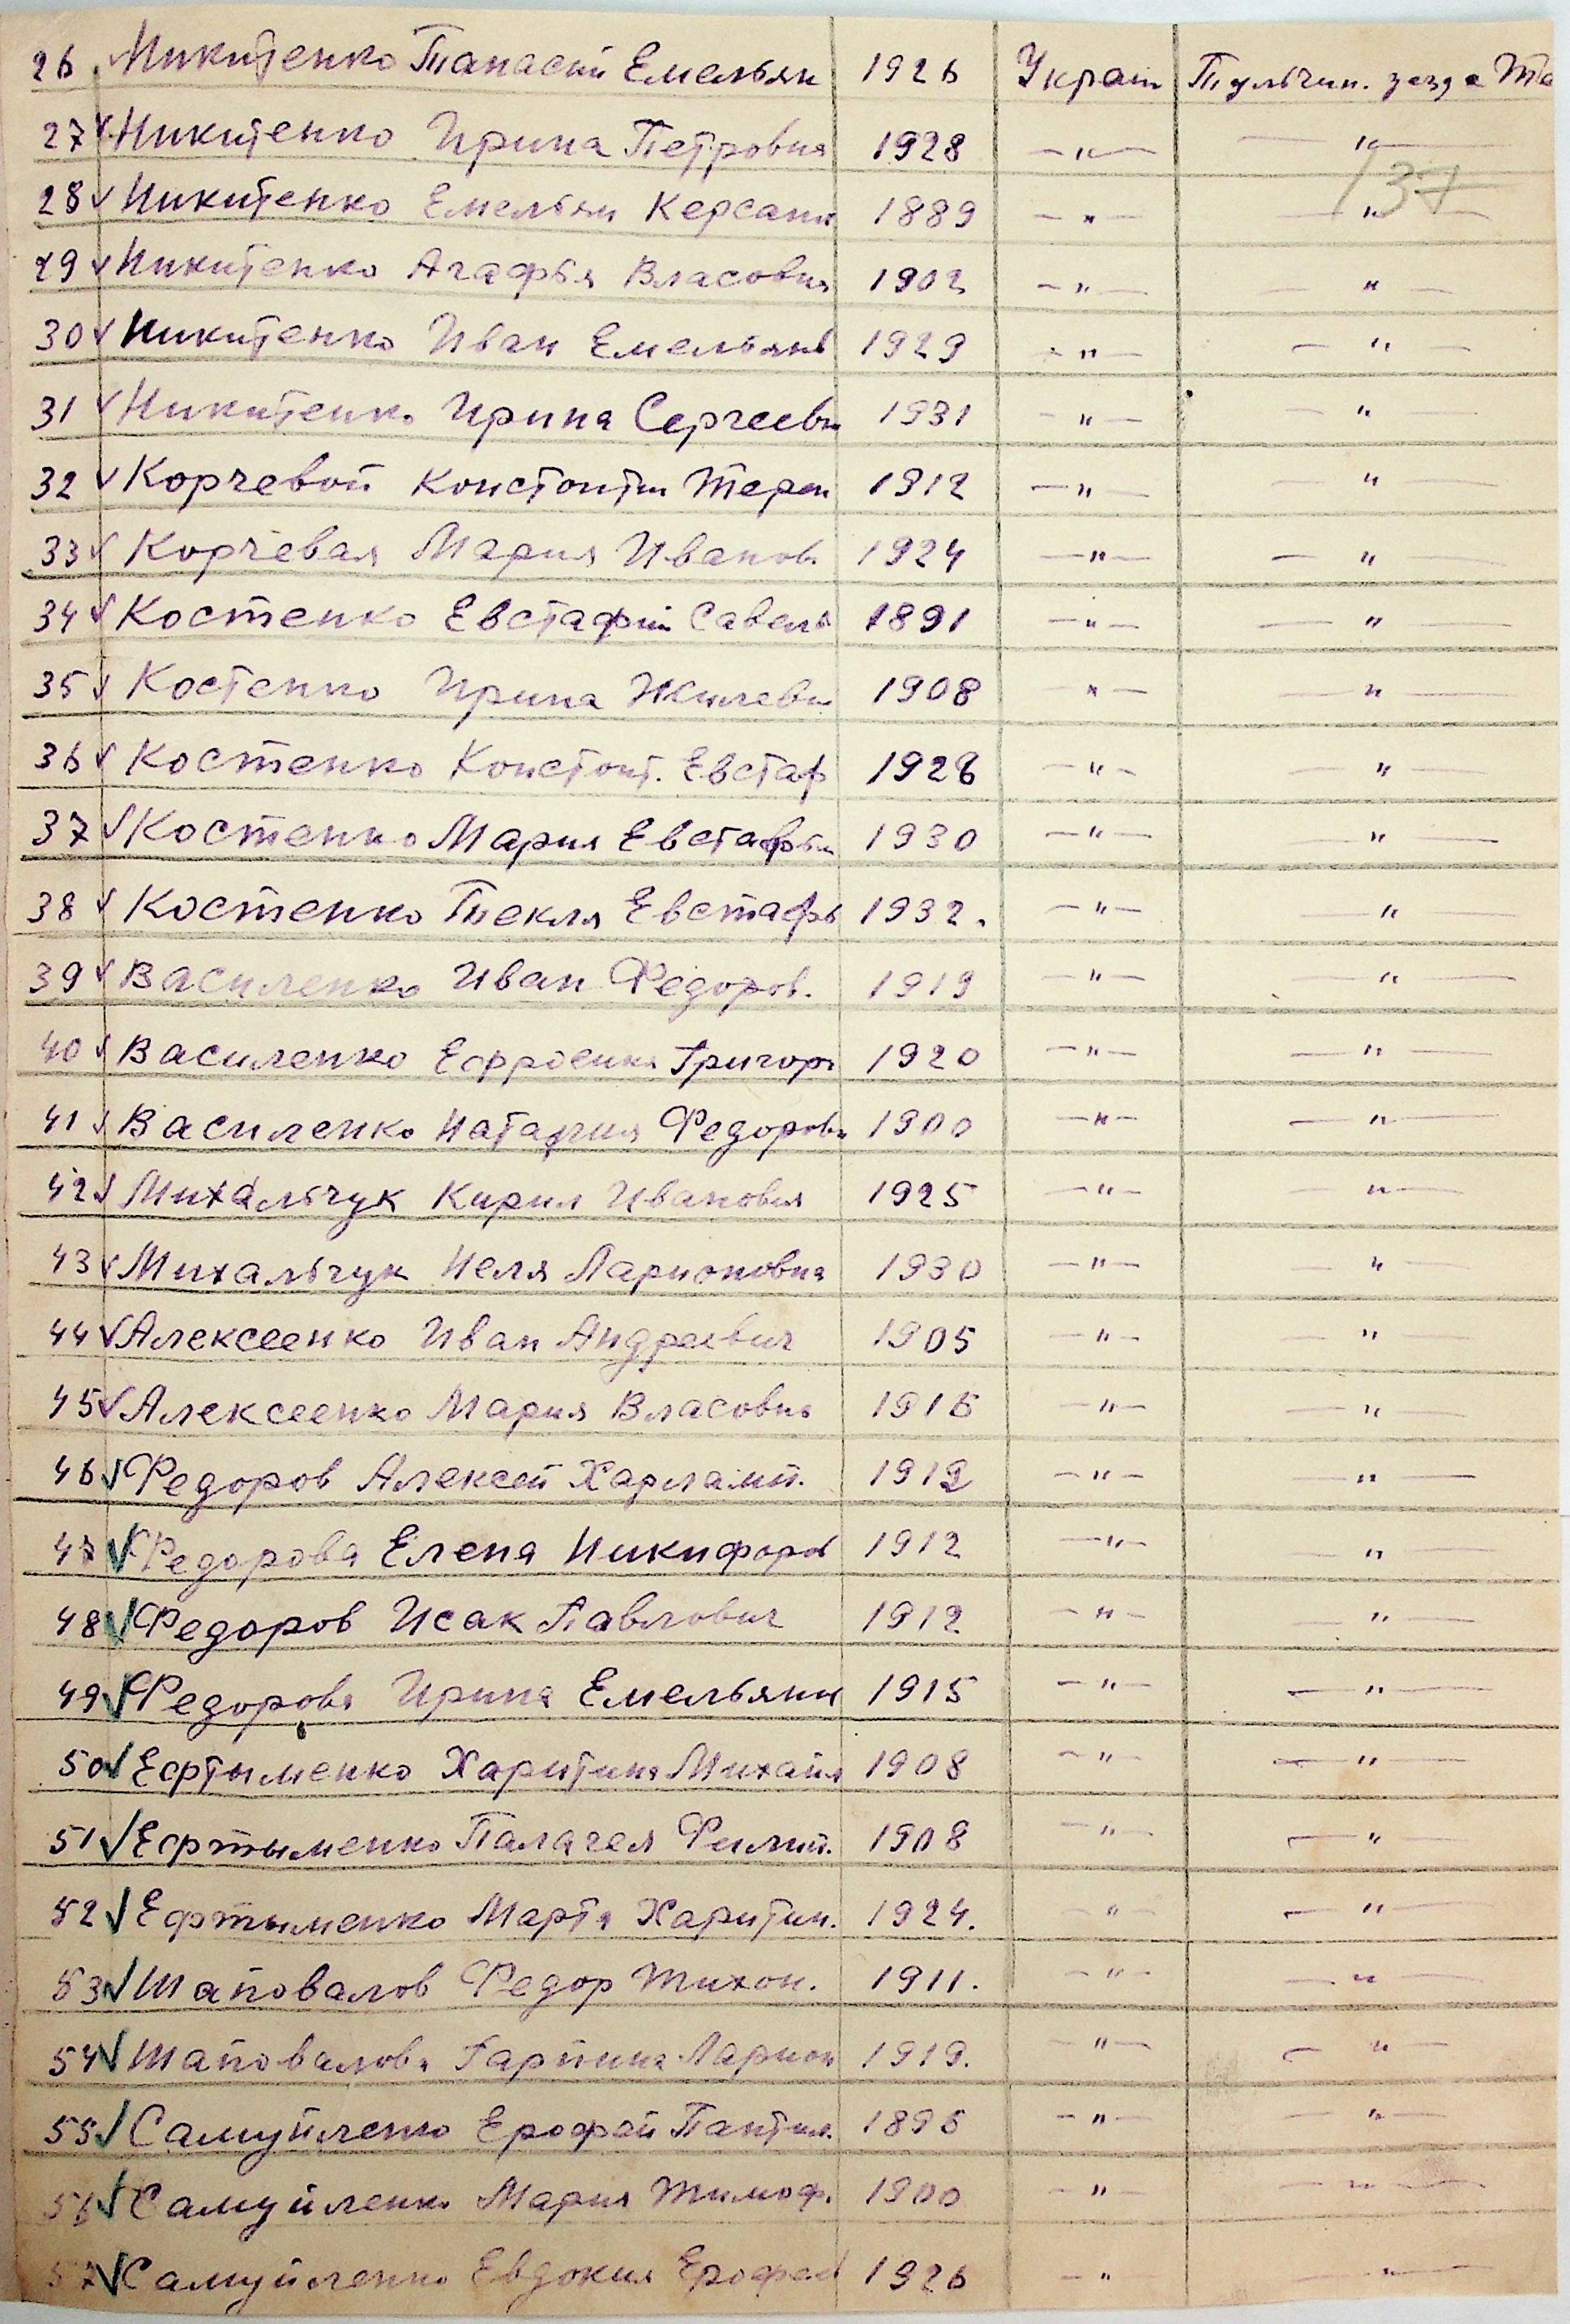 26 Никитенко Танасий Емельян 1926 Украин Тульчин. уезд с Те
27 ✓ Никитенко Ирина Петровна 1928 —"— —"—
137
28 ✓ Никитенко Емельян Керсант 1889 —"— —"—
29 ✓ Никитенко Агафья Власовна 1902 —"— —"—
30 ✓ Никитенко Иван Емельянов 1929 —"— —"—
31 ✓ Никитенко Ирина Сергеевн 1931 —"— —"—
32 ✓ Корчевой Константин Терен 1912 —"— —"—
33 ✓ Корчевая Мария Иванов. 1924 —"— —"—
34 ✓ Костенко Евстафий Савель 1891 —"— —"—
35 ✓ Костенко Ирина 1908 —"— —"—
36 ✓ Костенко Констант. Евстаф 1926 —"— —"—
37 ✓ Костенко Мария Евстафьи 1930 —"— —"—
38 ✓ Костенко Текля Евстафь 1932. —"— —"—
39 ✓ Василенко Иван Федоров. 1919 —"— —"—
40 ✓ Василенко Ефросиня Григорь 1920 —"— —"—
41 ✓ Василенко Наталия Федоровн 1900 —"— —"—
42 ✓ Михальчук Кирил Ивановия 1925 —"— —"—
43 ✓ Михальчук Неля Ларионовна 1930 —"— —"—
44 ✓ Алексеенко Иван Андреевич 1905 —"— —"—
45 ✓ Алексеенко Мария Власовна 1915 —"— —"—
46 ✓ Федоров Алексей Харламп. 1912 —"— —"—
47 ✓ Федорова Елена Никифоров 1912 —"— —"—
48 ✓ Федоров Исак Павлович 1912 —"— —"—
49 ✓ Федорова Ирина Емельянн 1915 —"— —"—
50 ✓ Ефтыменко Харитина Михайл 1908 —"— —"—
51 ✓ Ефтыменко Палагея Филип. 1908 —"— —"—
52 ✓ Ефтыменко Марта Харитин. 1924. —"— —"—
53 ✓ Шаповалов Федор Тихон. 1911. —"— —"—
54 ✓ Шаповалова Гарпина Ларион 1919. —"— —"—
55 ✓ Самуйленко Ерофей Пантил. 1895 —"— —"—
56 ✓ Самуйленко Мария Тимоф. 1900 —"— —"—
57 ✓ Самуйленко Евдокия Ерофеев 1926 —"— —"—